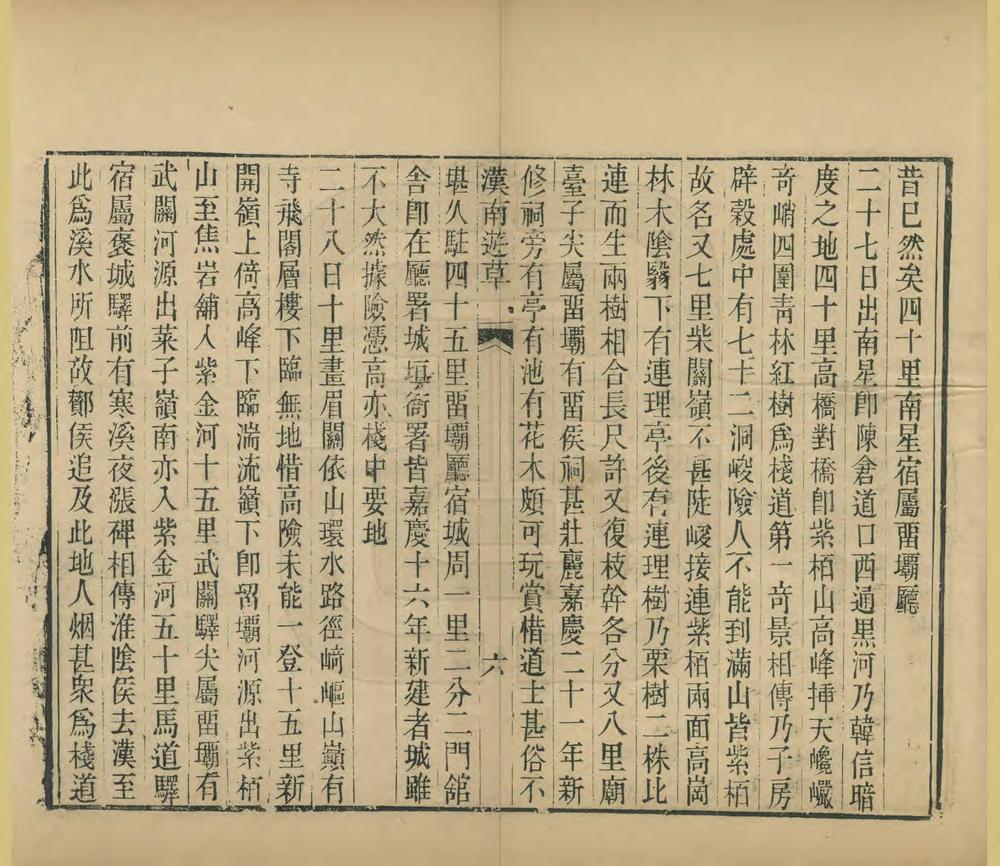 昔已然矣四十里南星宿屬畱壩廳
二十七日出南星卽陳倉道口西通黑河乃韓信暗
度之地四十里高橋對橋卽紫栢山高峰揷天巉巘
竒峭四圍靑林紅樹爲棧道第一竒景相傳乃子房
辟穀處中有七十二洞峻險人不能到滿山皆紫栢
故名又七里柴關嶺不甚陡峻接連紫栢兩面高崗
林木陰翳下有連理亭後有連理樹乃栗樹二株比
連而生兩樹相合長尺許又復枝幹各分又八里廟
臺子尖屬畱壩有畱侯祠甚壯麗嘉慶二十一年新
修祠旁有亭有池有花木頗可玩賞惜道士甚俗不
漢南遊草 六
堪久駐四十五里畱壩廳宿城周一里二分二門舘
舍卽在廳署城垣衙署皆嘉慶十六年新建者城雖
不大然據險憑高亦棧中要地
二十八日十里畫眉關依山環水路徑崎嶇山巔有
寺飛閣層樓下臨無地惜高險未能一登十五里新
開嶺上倚高峰下臨湍流嶺下卽畱壩河源出紫栢
山至焦岩舖入紫金河十五里武關驛尖屬畱壩有
武關河源出萊子嶺南亦入紫金河五十里馬道驛
宿屬褒城驛前有寒溪夜漲碑相傳淮陰侯去漢至
此爲溪水所阻故酇侯追及此地人烟甚衆爲棧道